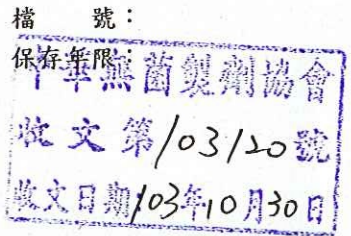 檔　　號：
保存年限：
中華無菌製劑協會
收文第103120號
收文日期103年10月30日